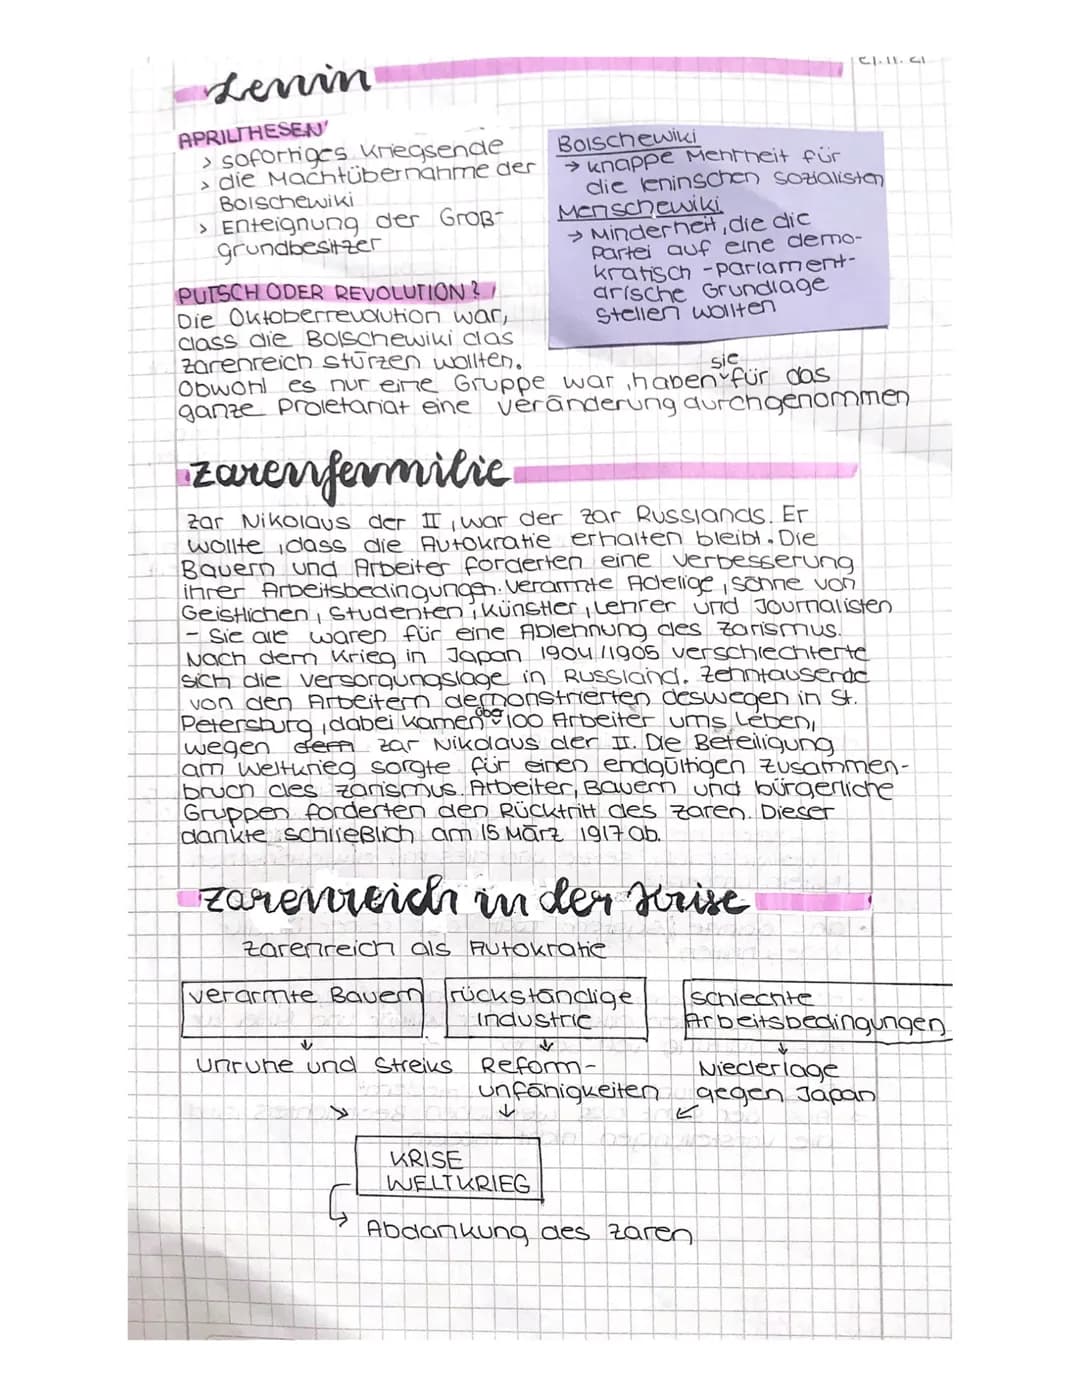 Lenin
21.11.21
APRILTHESEN
> sofortiges Kriegsende
> die Machtübernahme der
Bolschewiki
> Enteignung der Groß-
grundbesitzer
Bolschewiki
→ knappe Mehrheit für
die leninschen Sozialisten
Menschewiki
→ Minderheit, die die
Partei auf eine demo-
kratisch-parlament-
arische Grundlage
stellen wollten
PUTSCH ODER REVOLUTION?
Die Oktoberrevolution war,
dass die Bolschewiki das
Zarenreich stürzen wollten.
Obwohl es nur eine Gruppe war, haben sie für das
ganze Proletariat eine Veränderung durchgenommen
Zarenfamilie
Zar Nikolaus der II, war der Zar Russlands. Er
wollte, dass die Autokratie erhalten bleibt. Die
Bauern und Arbeiter forderten eine Verbesserung
ihrer Arbeitsbedingungen. Verarmte Adelige, Söhne von
Geistlichen, Studenten, Künstler, Lehrer und Journalisten
- Sie alle waren für eine Ablehnung des Zarismus.
Nach dem Krieg in Japan 1904/1905 verschlechterte
sich die Versorgungslage in Russland. Zehntausende
von den Arbeitern demonstrierten deswegen in St.
Petersburg, dabei kamen über 100 Arbeiter ums Leben,
wegen dem Zar Nikolaus der II. Die Beteiligung
am Weltkrieg sorgte für einen endgültigen Zusammen-
bruch des Zarismus. Arbeiter, Bauern und bürgerliche
Gruppen forderten den Rücktritt des Zaren. Dieser
dankte schließlich am 15 März 1917 ab.
Zarenreich in der Krise
Zarenreich als Autokratie
verarmte Bauern
rückständige
Industrie
schlechte
Arbeitsbedingungen
↓ ↓ ↓
Unruhe und Streiks
Reform-
unfähigkeiten
Niederlage
gegen Japan
↘ ↓ ↙
KRISE
WELTKRIEG
↳ Abdankung des Zaren